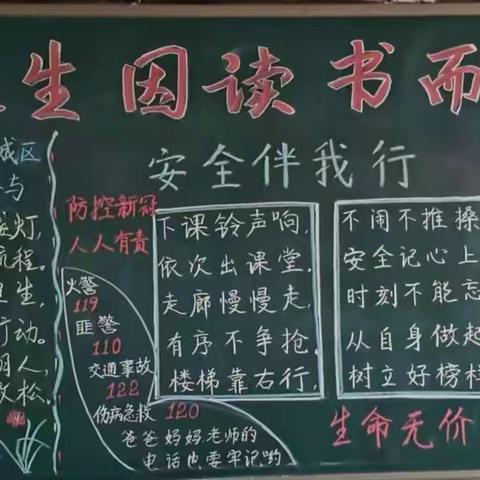 生因读书而
城区
与
灯,
流程.
生,
行动.
明人,
松.
安全伴我行
防控新冠
人人有责
火警
119
匪警
110
交通事故
122
伤病急救 120
爸爸妈妈老师的
电话也要牢记哟
下课铃声响,
依次出课堂.
走廊慢慢走,
有序不争抢.
楼梯靠右行,
不闹不推搡
安全记心上
时刻不能忘
从自身做起
树立好榜样
生命无价